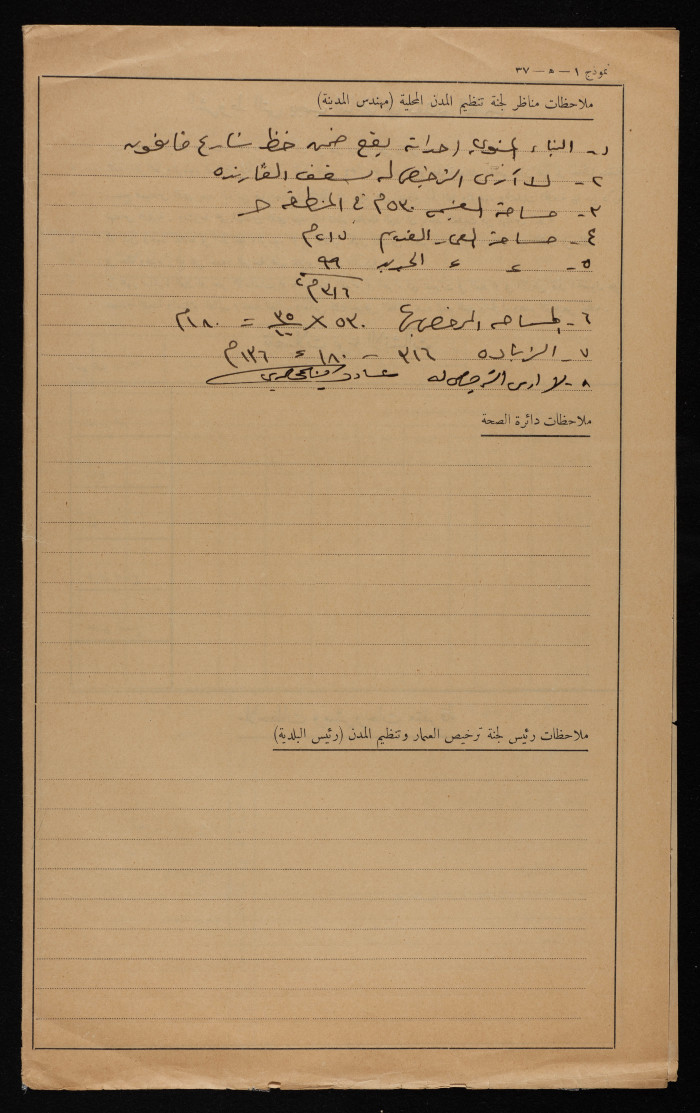 نموذج ١ — ٥ — ٣٧
ملاحظات مناظر لجنة تنظيم المدن المحلية (مهندس المدينة)
١- البناء المنوي احداثه يقع ضمن خط شارع قانوني
٢- لا أرى الترخيص له بسقف الڤارنده
٣- مساحة القسيمة ٥٣٠م في المنطقة ج
٤- مساحة البناء القديم ٢١٧م
٥- ״ ״ الجديد ٩٩
٣١٦م٢
٦- المساحه المرخص بها ٥٣٠ × ٣٥/١٠٠ = ١٨٠م
٧- الزياده ٣١٦ - ١٨٠ = ١٣٦م
٨- لا ارى الترخيص له
ملاحظات دائرة الصحة
ملاحظات رئيس لجنة ترخيص العمار وتنظيم المدن (رئيس البلدية)